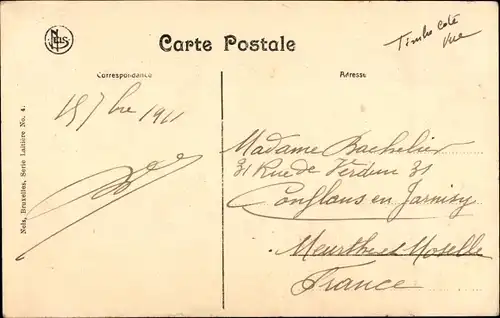 Carte Postale
Timbre coté
vue
Correspondance
Adresse
15 7bre 1911
Madame Bachelier
31 Rue de Verdun 31
Conflans en Jarnisy
Meurthe et Moselle
France
Nels, Bruxelles, Serie Laitière No. 4.